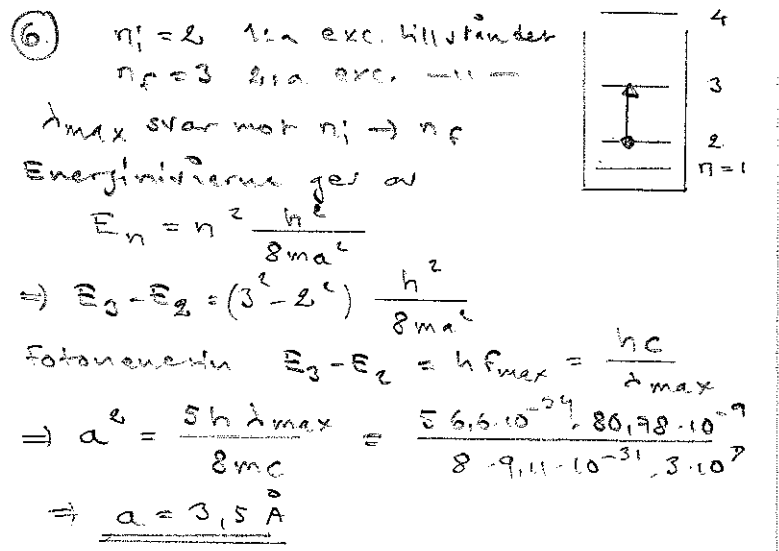 6. n_i = 2 1:a exc. tillståndet
n_f = 3 2:a exc. —"—
λ_max svar mot n_i → n_f
Energinivåerna ges av
E_n = n² h²/8ma²
⇒ E_3 - E_2 = (3² - 2²) h²/8ma²
Fotonenergin E_3 - E_2 = h f_max = hc/λ_max
⇒ a² = 5hλ_max/8mc = 5·6,6·10^-34·80,98·10^-9/8·9,11·10^-31·3·10^8
⇒ a = 3,5 Å
4
3
2
n=1